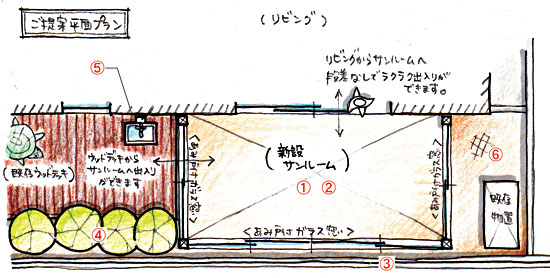 ご提案平面プラン
(リビング)
リビングからサンルームへ
段差なしでラクラク出入りが
できます。
⑤
(既存ウッドデッキ)
ウッドデッキから
サンルームへ出入り
ができます
<あみ戸付ガラス窓>
(新設
サンルーム)
① ②
<あみ戸付ガラス窓>
⑥
既存
物置
④
<あみ戸付ガラス窓>
③